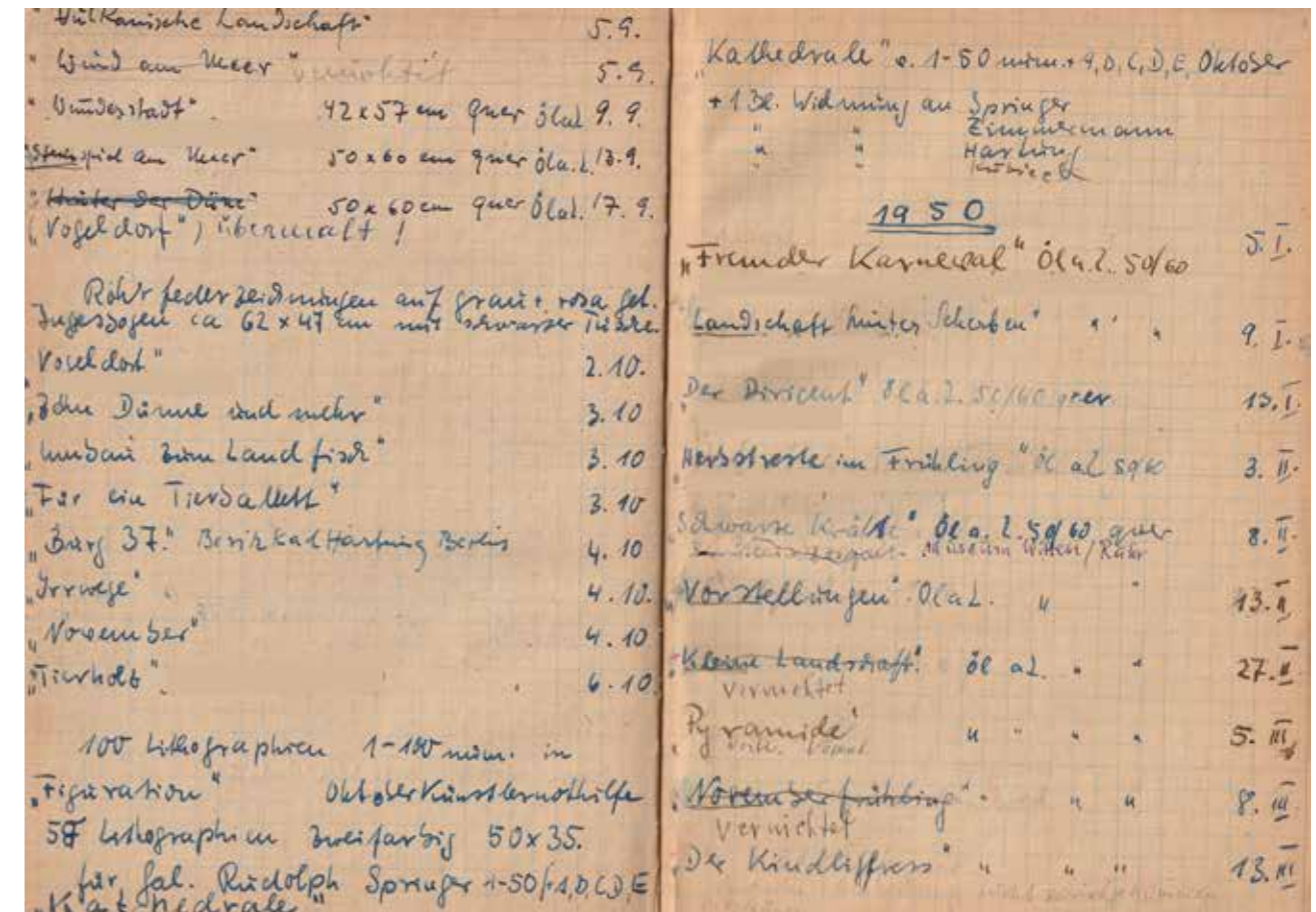 "Vulkanische Landschaft" 5.9.
"Wind am Meer" vernichtet 5.9.
"Wunderstadt" 42x57 cm quer Öl a L 9.9.
spiel am Meer" 50x60 cm quer Öl a. L. 13.9.
"Hinter der Düne" 50x60 cm quer Öl a L. 17.9.
("Vogeldorf") übermalt!
Rohrfederzeichnungen auf grau + rosa get.
Ingeszogen ca 62 x 47 cm mit schwarzer Tusche
Vogeldorf" 2.10.
"Zehn Dünne und mehr" 3.10
"Umbau zum Landfisch" 3.10
"Für ein Tierballett" 3.10
"Burg 37." Besitz Karl Hartung Berlin 4.10
"Irrwege" 4.10.
"November" 4.10
"Tierholz" 6.10
100 Lithographien 1-100 num. in
"Figuration" Oktober Künstlernothilfe
57 Lithographien zweifarbig 50x35.
für Gal. Rudolph Springer 1-50 + A,B,C,D,E
"Kathedrale"
"Kathedrale" 1-50 num. + A, B, C, D, E, Oktober
+ 1 Bl. Widmung an Springer
" " Zimmermann
" " Hartung
1950
"Fremder Karneval" Öl a. L. 50/60 5. I.
"Landschaft hinter Scheiben" " " 9. I.
"Der Dirigent" Öl a. L. 50/60 quer 13. I.
Herbstreste im Frühling" Öl a L 50/60 3. II.
Schwarze Kräfte" Öl a. L. 50/60 quer 8. II.
Museum Witten/Ruhr
"Vorstellungen" Öl a L. " " 13. II
"Kleine Landschaft" Öl a L. " " 27. II
vernichtet
"Pyramide" " " " " 5. III
"Novemberfrühling" " " " 8. III
vernichtet
"Der Kindlifress" " " " 13. III